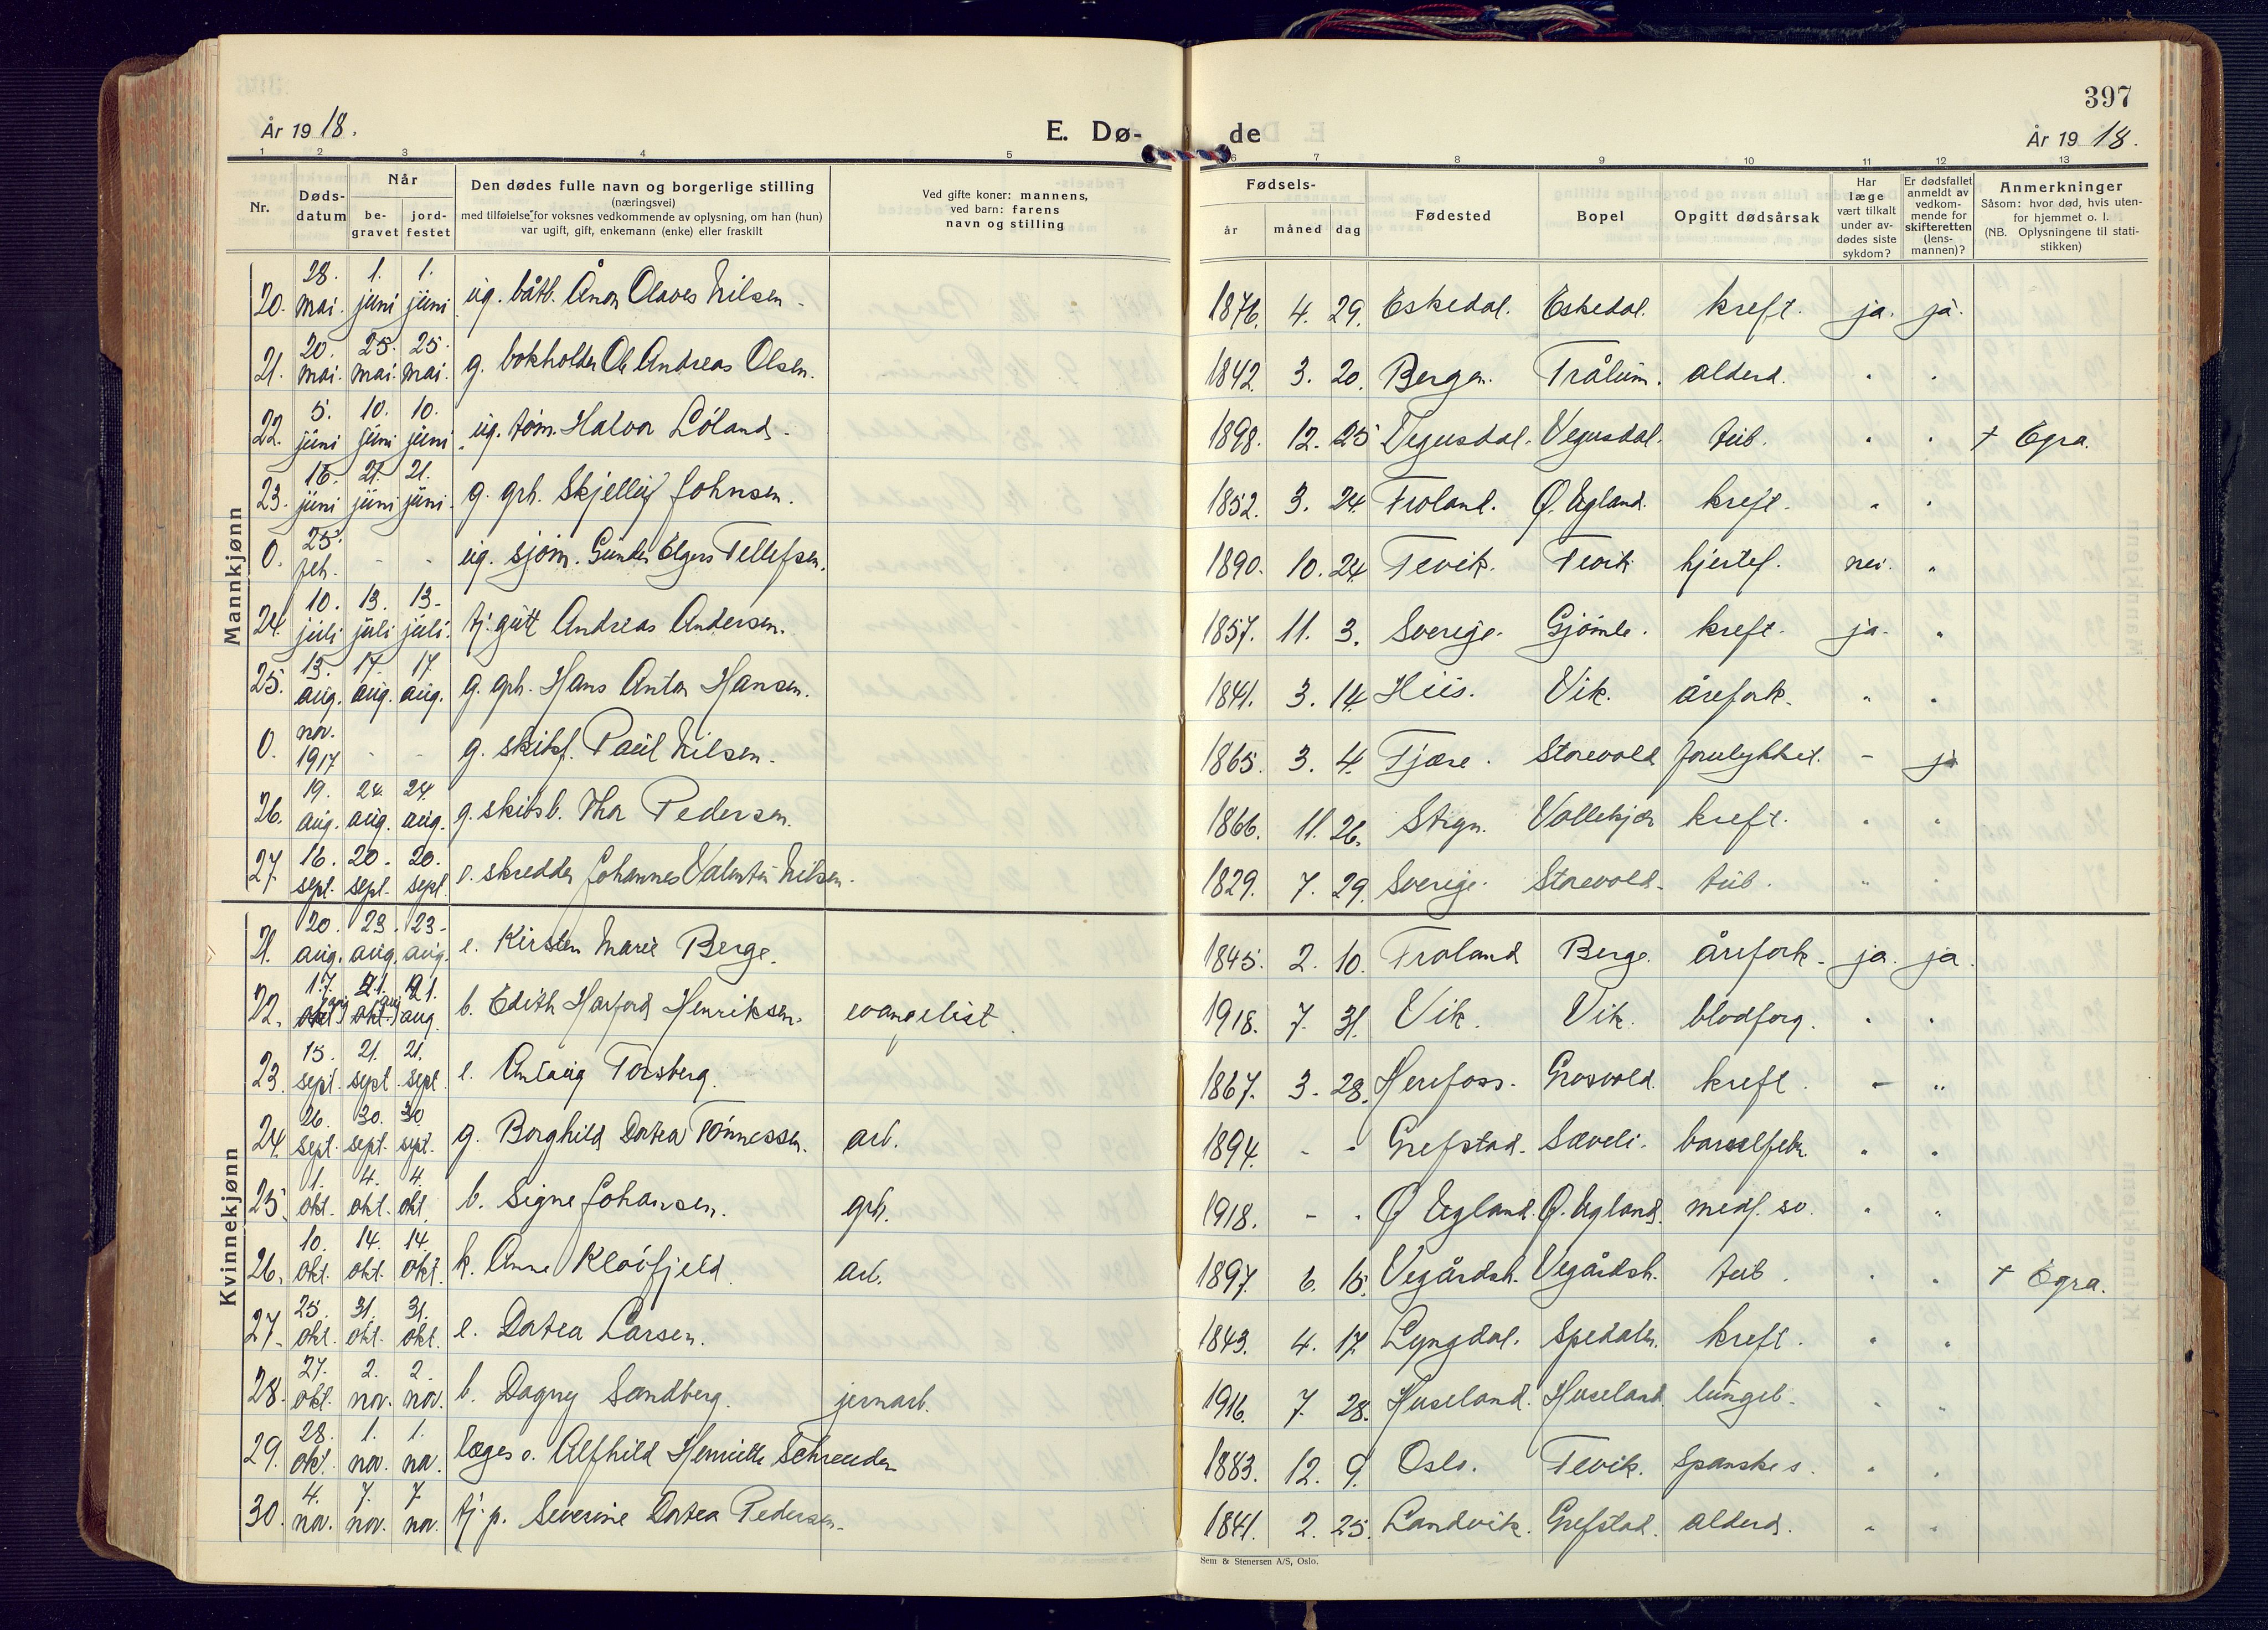 397
År 1918.
E. Dø-
de
År 1918.
1 2 3 4 5 6 7 8 9 10 11 12 13
Nr.
Døds-
datum
Når
be-
gravet
jord-
festet
Den dødes fulle navn og borgerlige stilling
(næringsvei)
med tilføielse for voksnes vedkommende av oplysning, om han (hun)
var ugift, gift, enkemann (enke) eller fraskilt
Ved gifte koner: mannens,
ved barn: farens
navn og stilling
Fødsels-
år måned dag
Fødested
Bopel
Opgitt dødsårsak
Har
læge
vært tilkalt
under av-
dødes siste
sykdom?
Er dødsfallet
anmeldt av
vedkom-
mende for
skifteretten
(lens-
mannen)?
Anmerkninger
Såsom: hvor død, hvis uten-
for hjemmet o. l.
(NB. Oplysningene til stati-
stikken)
Mannkjønn
20. 28. mai. 1. juni 1. juni ug. båtb. Ånon Olaves Nilsen - 1876. 4. 29. Eskedal. Eskedal. kreft. ja. ja.
21. 20. mai. 25. mai. 25. mai. g. bokholder Ole Andreas Olsen. 1842. 3. 20. Bergen. Trålum. alderd. " "
22. 5. juni 10. juni 10. juni ug. tøm. Halvor Løland. 1898. 12. 25 Vegusdal. Vegusdal. tub. " " † Egra.
23. 16. juni 21. juni 21. juni g. grb. Skjellug Johnsen. 1852. 3. 24. Froland. Ø. Ugland. kreft. " "
0. 25. feb. - - ug. sjøm. Gunder Elgers Tellefsen. 1890. 10. 24. Fevik. Fevik hjertef. nei. "
24. 10. juli 13. juli 13. juli. tj. gutt Andreas Andersen. 1857. 11. 3. Sverige. Gjømle. kreft. ja. "
25. 13. aug. 17. aug. 17. aug. g. grb. Hans Anton Hansen. 1841. 3. 14. Hiis. Vik. årefork. " "
0. nov. 1917 - - g. skibsf. Paul Nilsen. 1865. 3. 4. Fjære. Storevold forulykket. - ja
26. 19. aug. 24. aug. 24. aug. g. skibsb. Thor Pedersen. 1866. 11. 26. Vollekjær kreft. " "
27. 16. sept. 20. sept. 20. sept. e. skredder Johannes Valentin Nilsen. 1829. 7. 29. Sverige. Storevold. tub. " "
Kvinnekjønn
21. 20. aug. 23. aug. 23. aug. e. Kirsten Marie Berge. 1845. 2. 10. Froland Berge. årefork. ja. ja.
22. 17. okt. (aug) 21. okt. (aug) 21. aug. b. Edith Harford Henriksen. evangelist. 1918. 7. 31. Vik. Vik. blodforg. " "
23. 15. sept. 21. sept 21. sept. e. Anlaug Torsberg. 1867. 3. 28. Herefoss. Grosvold. kreft. - "
24. 26. sept. 30. sept. 30 sept. g. Borghild Dortea Tønnessen. arb. 1894. - - Grefstad. Sæveli. barselfebr. " "
25. 1. okt. 4. okt. 4. okt. b. Signe Johansen. grb. 1918. - - Ø. Ugland. Ø. Ugland. medf. sv. " "
26. 10. okt. 14. okt. 14. okt. k. Anne Kleifjeld. arb. 1897. 6. 15. Vegårdsh. Vegårdsh. tub. " " † Egra.
27. 25. okt. 31. okt. 31. okt. e. Dortea Larsen. 1843. 4. 17. Lyngdal. Spedalen. kreft. " "
28. 27. okt. 2. nov. 2. nov. b. Dagny Sandberg. jernarb. 1916. 7. 28. Huseland. Huseland lungeb. " "
29. 28. okt. 1. nov. 1. nov. læges e. Alfhild Henriette Schreuder 1883. 12. 9. Oslo. Fevik. Spanske s. " "
30. 4. nov. 7. nov. 7. nov. tj. p. Severine Dortea Pedersen. 1841. 2. 25. Landvik. Grefstad. alderd. " "
Sem & Stenersen A/S, Oslo.